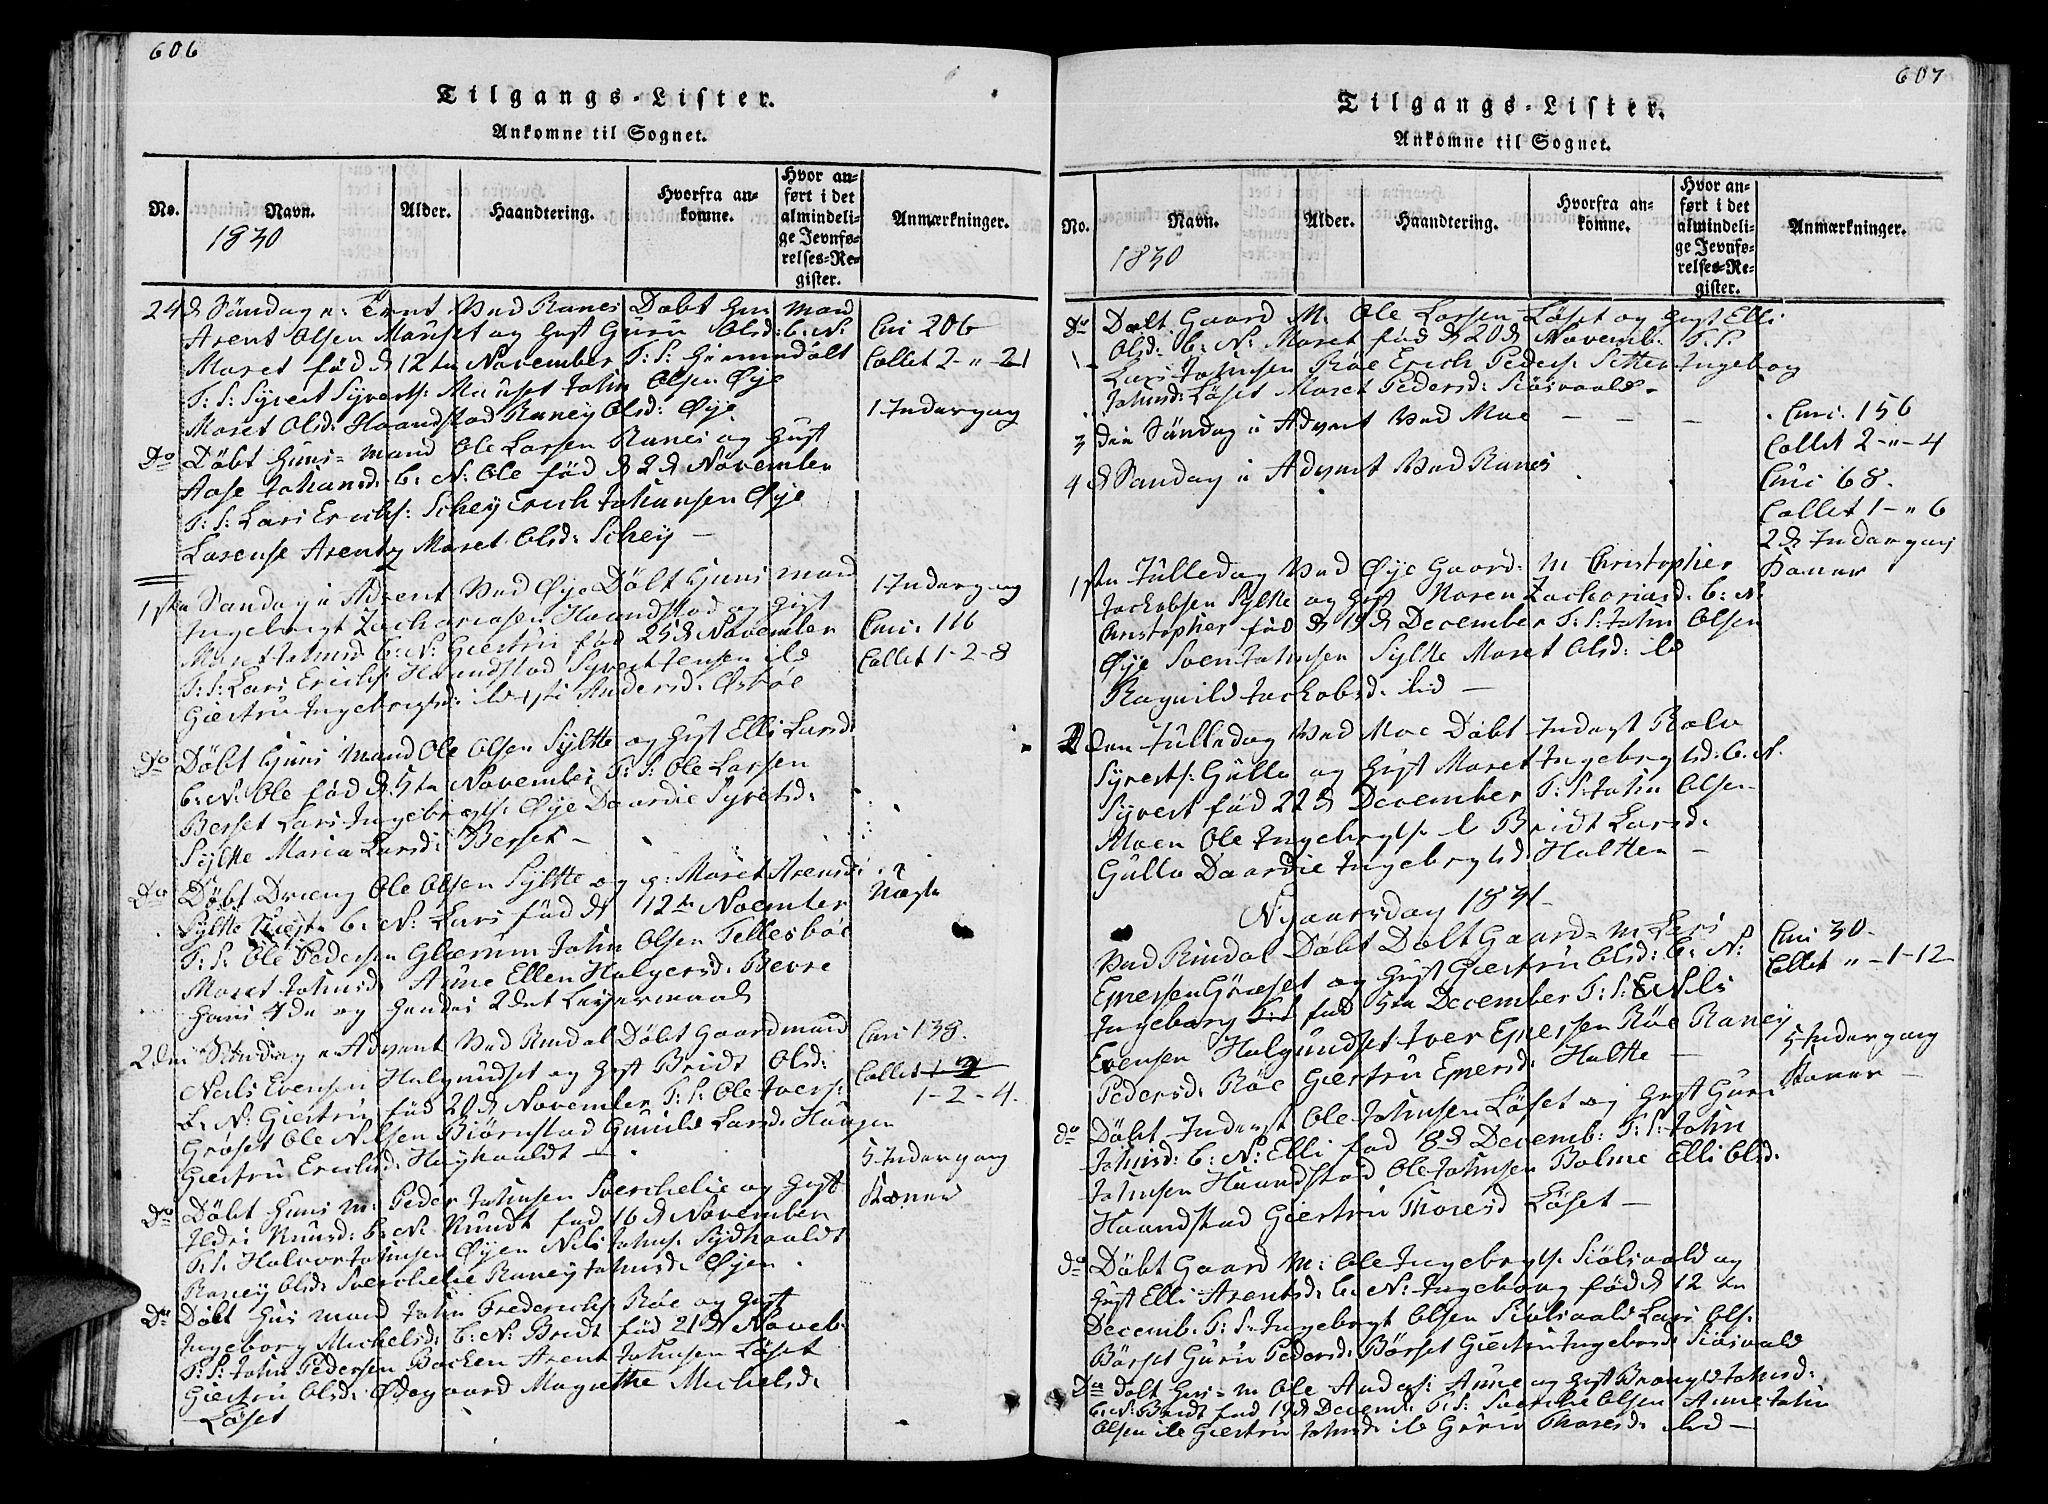 606
Tilgangs-Lister.
Ankomne til Sognet.
No.
Navn.
Alder.
Haandtering.
Hvorfra an-
komne.
Hvor an-
ført i det
almindeli-
ge Jevnfø-
relses-Re-
gister.
Anmærkninger.
1830
24d Søndag e: Trint Ved Ranes Døbt Huusmand
Arent Olsen Mauset og Gvst Guru Olsd: b: N:
Maret fød d 12te November F: S:
F: S: Syvert Syverts: Mauset John Olsen Øye
Maret Olsd: Haandstad Raney Olsd: Øye
Cmi 206
Collet 2-"-21
1 Indergang
Do Døbt Huus=mand Ole Larsen Ranes og Gvst
Aase Johansd: b: N: Ole fød d 2d November
F: S: Lars Erichs: Schey Erich Johansen Øye
Larense Arentz Maret Olsd: Schey —
1ste Søndag i Advent Ved Øye Døbt Huusmand
Ingebrigt Zachariasen Haandstad og Gvst
Maret Johnsd b: N: Giertru fød 25d November
F: S: Lars Erichs: Haandstad Syvert Jensen ib
Giertru Ingebrigtsd: ib Andersd: Øsbøe
1 Indergang
Cmi: 116
Collet 1-2-8
Do Døbt Huusmand Ole Olsen Sylte og Gvst Elli Larsd:
b: N: Ole fød d 5te November F: S: Ole Larsen
Berset Lars Ingebrigts: Øye Daardie Syvertsd:
Sylte Maria Larsd: Berset —
Do Døbt Dræng Ole Olsen Sylte og g: Maret Arensd:
Sylte b: N: Lars fød d 12te Noember
F: S: Ole Pedersen Glærum John Olsen Tellesbøe
Maret Johnsd Anne Ellen Holgersd: Bevre
hans 4de og hendes 2det Leyermaal
2den Søndag i Advent Ved Rindal Døbt Gaardmand
Nels Evensen Halgundset og Gvst Bridt Olsd:
b: N: Giertru fød 20d November F: S: Ole Ivers:
Grøset Ole Nilsen Biørnstad Gunild Larsd: Haugen
Giertru Erichsd: —
Cmi 138.
Collet
1-2-4.
5 Indergang
Koner
Do Døbt Huus m: Peder Johnsen Sverchelie og Gvst
Ildri Knusd: b: N: Knudt fød 16d November
F: S: Halvor Johnsen Øyen Nils Johns:
Raney Olsd: Sverchelie Raney Johnsd: Øyen
Do Døbt Huusmand John Frederichs: Røe og Gvst
Ingeborg Michelsd: b: N: Bridt fød 21d Noveb:
F: S: John Pedersen Bachen Arent Johnsen Løset
Giertru Olsd: Ødegaard Magrethe Michelsd:
Løset
607
Tilgangs-Lister.
Ankomne til Sognet.
No.
Navn.
Alder.
Haandtering.
Hvorfra an-
komne.
Hvor an-
ført i det
almindeli-
ge Jevnfø-
relses-Re-
gister.
Anmærkninger.
1830
Do Døbt Gaard M: Ole Larsen Løset og Gvst Elli
Olsd: b: N: Maret fød d 20d Novemb: F: S:
Lars Johnsen Røe Erich Peders: Setter Ingeborg
Johnsd: Løset Maret Pedersd: Siøsvold —
3die Søndag i Advent Ved Moe — — —
Cmi: 156
Collet 2-"-4
4d Søndag i Advent Ved Ranes
Cmi 68.
Collet 1-"6
2d Indergang
Koner
1ste Julledag Ved Øye Gaard: M Christopher
Jackobsen Sylte og Gvst Maren Zachariasd: b: N:
Christopher fød d 19d December F: S: John Olsen
Øye Sven Johnsen Sylte Maret Olsd: ib
Ragnild Jackobsd: ibid —
2den Julledag Ved Moe Døbt Inderst Ralv
Syverts: Gulla og Gvst Maret Ingebrigtsd: b: N:
Syvert fød 22d December F: S: John Olsen
Moen Ole Ingebrigts: ib Bridt Larsd:
Gulla Daardie Ingebrigtsd: Halten —
Nyaarsdag 1831
Ved Rindal Døbt Gaard=m Lars
Epersen Grøset og Gvst Giertru Olsd: b: N:
Ingeborg fød 5te December F: S: Nils
Evensen Halgundset Iver Epersen Røe Raney
Pedersd: Røe Giertru Epersd: Halte —
Cmi 30-
Collet "-1-12
5 Indergang
Koner —
do Døbt Inderst Ole Johnsen Løset og Gvst Guru
Johnsd: b: N: Elli fød 8d Decemb: F: S: John
Johnsen Haandstad Ole Johnsen Bolme Elli Olsd:
Haandstad Giertru Thoresd Løset —
do Døbt Gaard M: Ole Ingebrigts: Siølsvold og
Gvst Elli Arentsd: b: N: Ingeborg fød d 12te
Decemb. F: S: Ingebrigt Olsen Siølsvold Lars Ols:
Børset Guru Pedersd: Børset Giertru Ingebrisd: Siøsvold
Do Døbt Huus=m Ole Anders: Aune og Gvst Johnsd:
b: N: Bridt fød 19d Decemb: F: S: Sverche Olsen Aune John
Olsen ib Giertru Johnsd: ib Guru Thoresd: ibid —